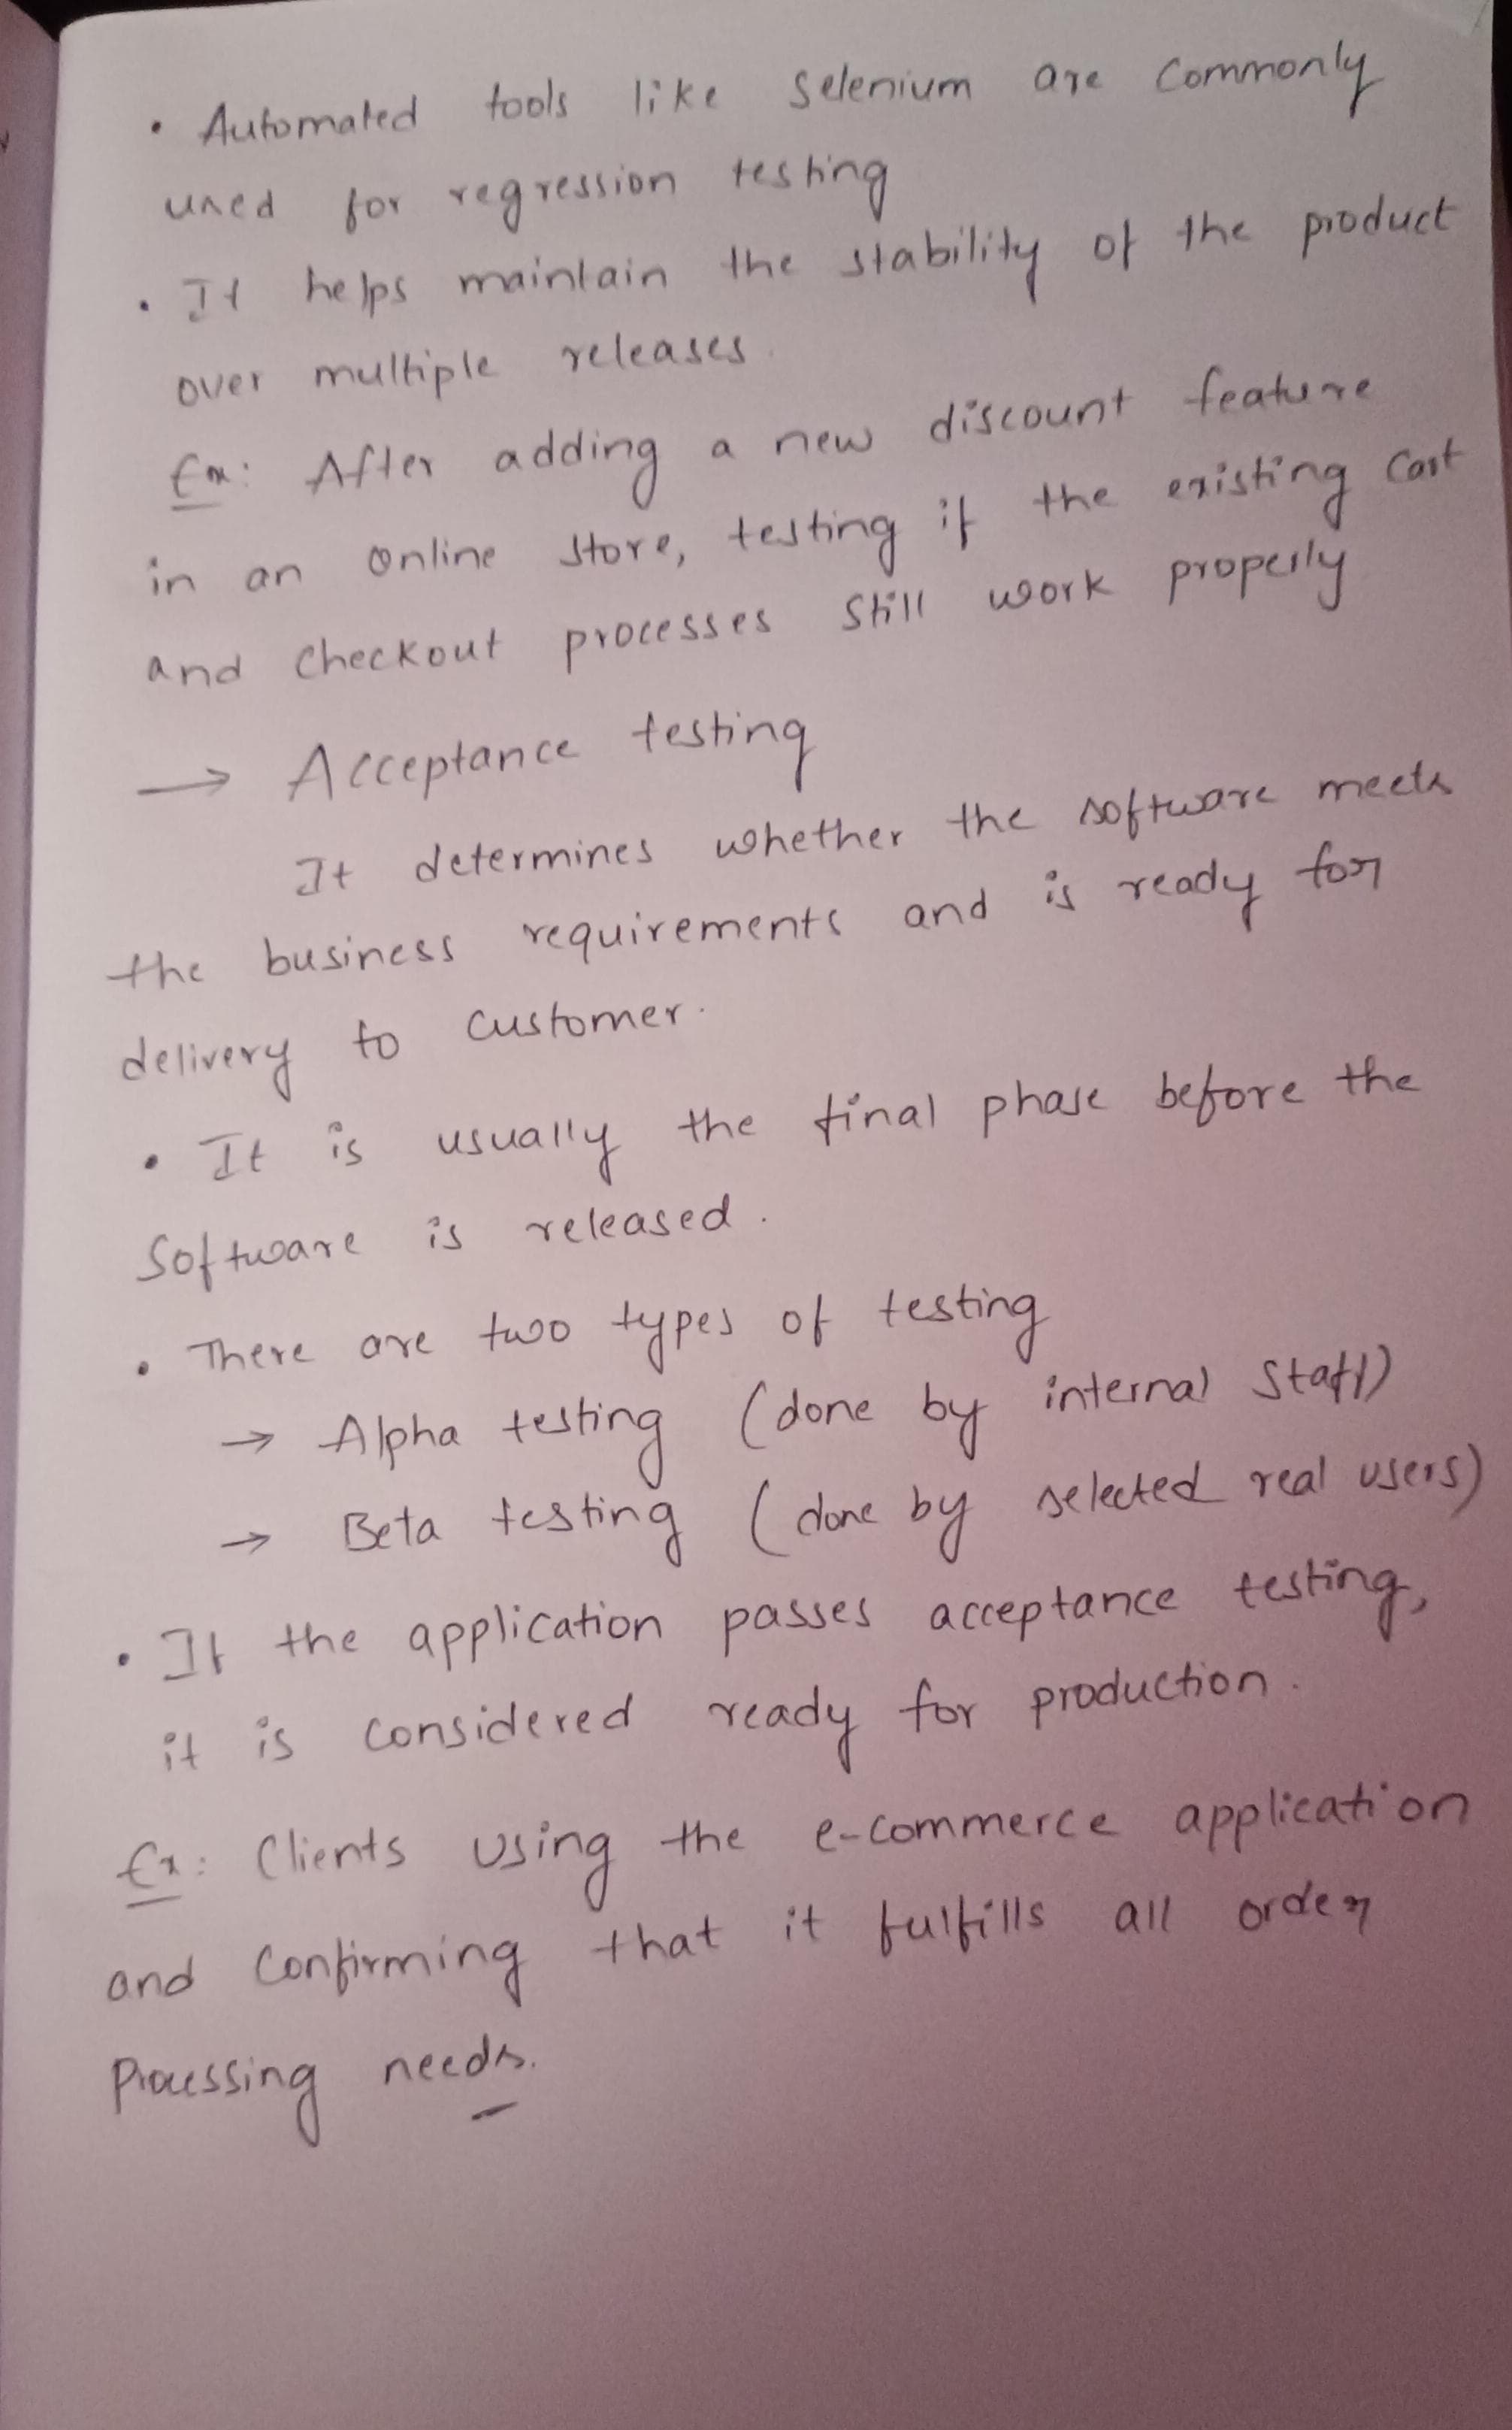 • Automated tools like Selenium are commonly
used for regression testing
• It helps maintain the stability of the product
over multiple releases.
Ex: After adding a new discount feature
in an online store, testing if the existing cart
and checkout processes still work properly
→ Acceptance testing
It determines whether the software meets
the business requirements and is ready for
delivery to customer.
• It is usually the final phase before the
Software is released.
• There are two types of testing
→ Alpha testing (done by internal staff)
→ Beta testing (done by selected real users)
• If the application passes acceptance testing,
it is considered ready for production.
Ex: Clients using the e-commerce application
and confirming that it fulfills all order
processing needs.